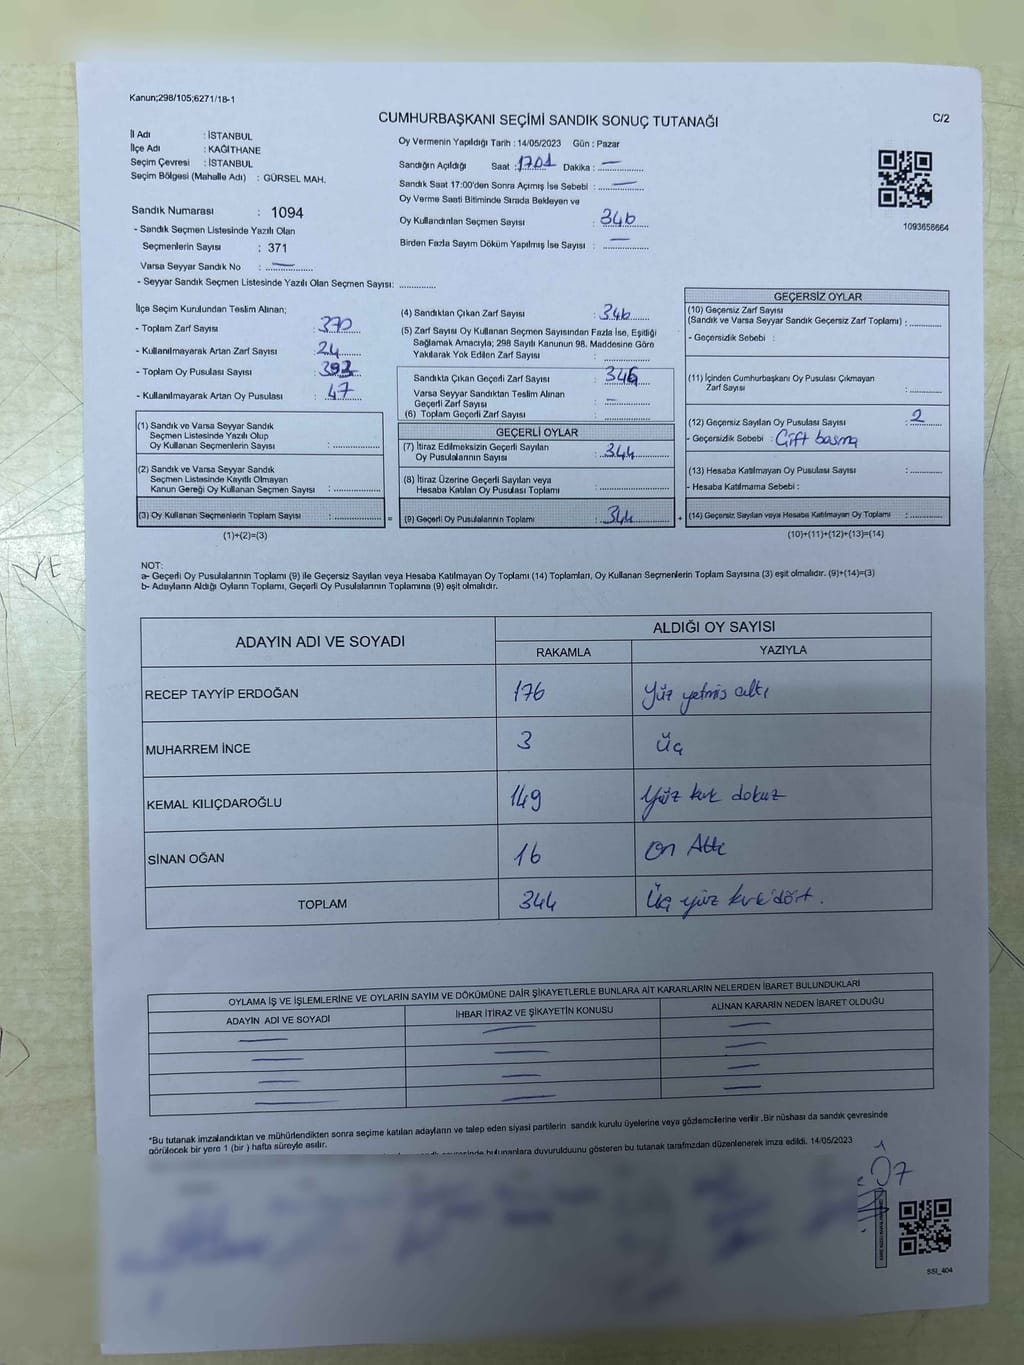 Kanun;298/105;6271/18-1
CUMHURBAŞKANI SEÇİMİ SANDIK SONUÇ TUTANAĞI
C/2
İl Adı : İSTANBUL
İlçe Adı : KAĞITHANE
Seçim Çevresi : İSTANBUL
Seçim Bölgesi (Mahalle Adı) : GÜRSEL MAH.
Sandık Numarası : 1094
- Sandık Seçmen Listesinde Yazılı Olan
Seçmenlerin Sayısı : 371
Varsa Seyyar Sandık No : —
- Seyyar Sandık Seçmen Listesinde Yazılı Olan Seçmen Sayısı: ..............
Oy Vermenin Yapıldığı Tarih : 14/05/2023 Gün : Pazar
Sandığın Açıldığı Saat : 1701 Dakika : —
Sandık Saat 17:00'den Sonra Açımış İse Sebebi : —
Oy Verme Saati Bitiminde Sırada Bekleyen ve
Oy Kullandırılan Seçmen Sayısı : 346
Birden Fazla Sayım Döküm Yapılmış İse Sayısı : —
1093656664
İlçe Seçim Kurulundan Teslim Alınan;
- Toplam Zarf Sayısı : 370
- Kullanılmayarak Artan Zarf Sayısı : 24
- Toplam Oy Pusulası Sayısı : 393
- Kullanılmayarak Artan Oy Pusulası : 47
(1) Sandık ve Varsa Seyyar Sandık
Seçmen Listesinde Yazılı Olup
Oy Kullanan Seçmenlerin Sayısı : ..............
(2) Sandık ve Varsa Seyyar Sandık
Seçmen Listesinde Kayıtlı Olmayan
Kanun Gereği Oy Kullanan Seçmen Sayısı : ..............
(3) Oy Kullanan Seçmenlerin Toplam Sayısı : .............. =
(1)+(2)=(3)
(4) Sandıktan Çıkan Zarf Sayısı : 346
(5) Zarf Sayısı Oy Kullanan Seçmen Sayısından Fazla İse, Eşitliği
Sağlamak Amacıyla; 298 Sayılı Kanunun 98. Maddesine Göre
Yakılarak Yok Edilen Zarf Sayısı : ..............
Sandıkta Çıkan Geçerli Zarf Sayısı : 346
Varsa Seyyar Sandıktan Teslim Alınan
Geçerli Zarf Sayısı : —
(6) Toplam Geçerli Zarf Sayısı : ..............
GEÇERLİ OYLAR
(7) İtiraz Edilmeksizin Geçerli Sayılan
Oy Pusulalarının Sayısı : 344
(8) İtiraz Üzerine Geçerli Sayılan veya
Hesaba Katılan Oy Pusulası Toplamı : ..............
(9) Geçerli Oy Pusulalarının Toplamı : 344 +
GEÇERSİZ OYLAR
(10) Geçersiz Zarf Sayısı
(Sandık ve Varsa Seyyar Sandık Geçersiz Zarf Toplamı) : ..............
- Geçersizlik Sebebi :
(11) İçinden Cumhurbaşkanı Oy Pusulası Çıkmayan
Zarf Sayısı : ..............
(12) Geçersiz Sayılan Oy Pusulası Sayısı : 2
- Geçersizlik Sebebi : Çift basma
(13) Hesaba Katılmayan Oy Pusulası Sayısı : ..............
- Hesaba Katılmama Sebebi :
(14) Geçersiz Sayılan veya Hesaba Katılmayan Oy Toplamı : ..............
(10)+(11)+(12)+(13)=(14)
VE
NOT:
a- Geçerli Oy Pusulalarının Toplamı (9) ile Geçersiz Sayılan veya Hesaba Katılmayan Oy Toplamı (14) Toplamları, Oy Kullanan Seçmenlerin Toplam Sayısına (3) eşit olmalıdır. (9)+(14)=(3)
b- Adayların Aldığı Oyların Toplamı, Geçerli Oy Pusulalarının Toplamına (9) eşit olmalıdır.
ADAYIN ADI VE SOYADI
ALDIĞI OY SAYISI
RAKAMLA YAZIYLA
RECEP TAYYİP ERDOĞAN 176 Yüz yetmiş altı
MUHARREM İNCE 3 Üç
KEMAL KILIÇDAROĞLU 149 Yüz kırk dokuz
SİNAN OĞAN 16 On Altı
TOPLAM 344 Üç yüz kırk dört.
OYLAMA İŞ VE İŞLEMLERİNE VE OYLARIN SAYIM VE DÖKÜMÜNE DAİR ŞİKAYETLERLE BUNLARA AİT KARARLARIN NELERDEN İBARET BULUNDUKLARI
ADAYIN ADI VE SOYADI İHBAR İTİRAZ VE ŞİKAYETİN KONUSU ALINAN KARARIN NEDEN İBARET OLDUĞU
*Bu tutanak imzalandıktan ve mühürlendikten sonra seçime katılan adayların ve talep eden siyasi partilerin sandık kurulu üyelerine veya gözlemcilerine verilir .Bir nüshası da sandık çevresinde
görülecek bir yere 1 (bir ) hafta süreyle asılır.
bulunanlara duyurulduunu gösteren bu tutanak tarafımızdan düzenlenerek imza edildi. 14/05/2023
SSI_404